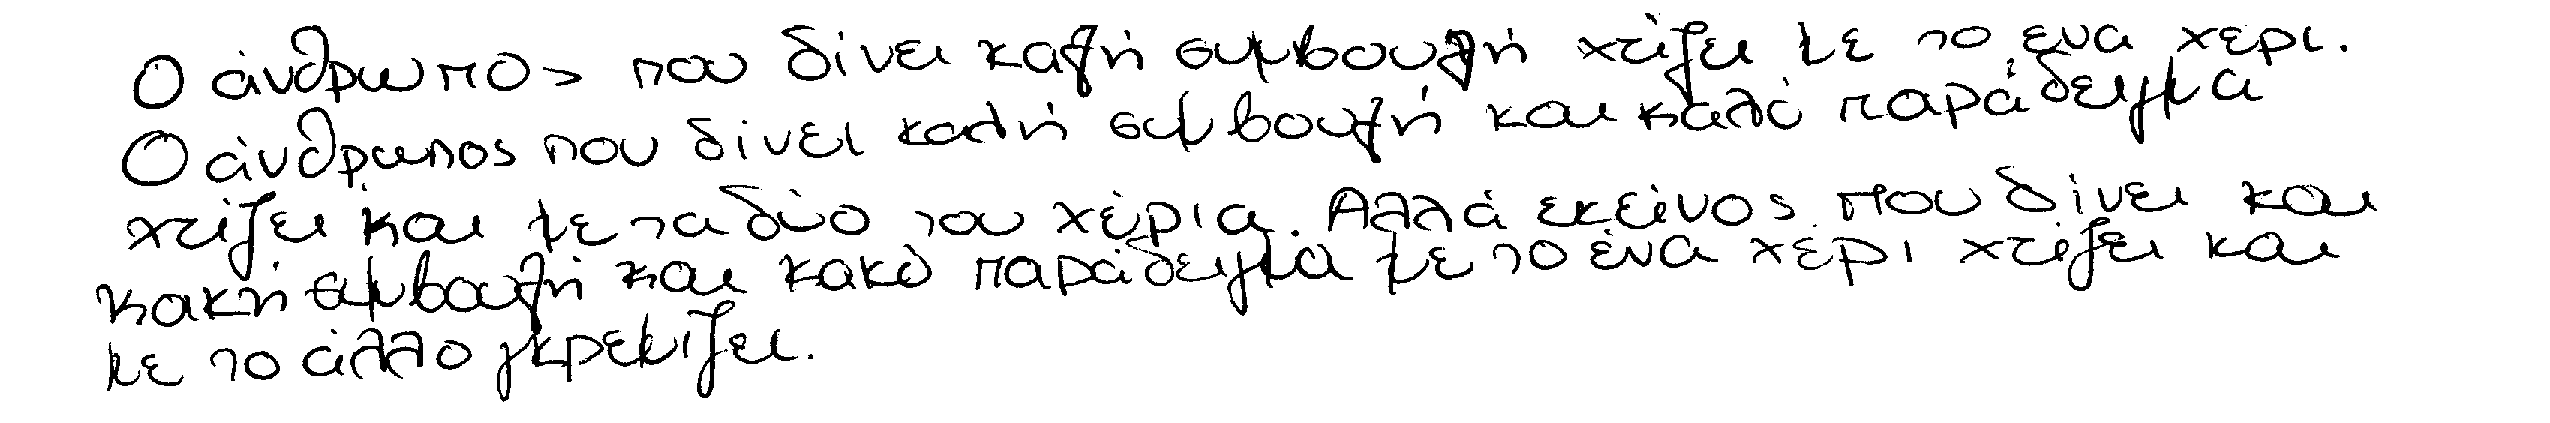 Ο άνθρωπος που δίνει καλή συμβουλή χτίζει με το ένα χέρι.
Ο άνθρωπος που δίνει καλή συμβουλή και καλό παράδειγμα
χτίζει και με τα δύο του χέρια. Αλλά εκείνος που δίνει και
κακή συμβουλή και κακό παράδειγμα με το ένα χέρι χτίζει και
με το άλλο γκρεμίζει.